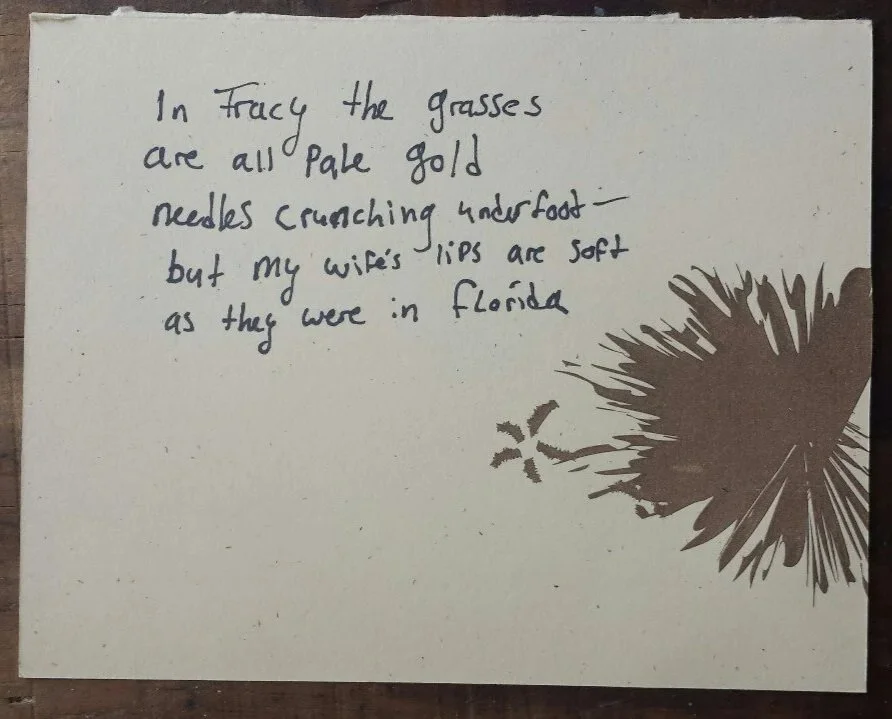 In Tracy the grasses
are all pale gold
needles crunching underfoot—
but my wife's lips are soft
as they were in Florida